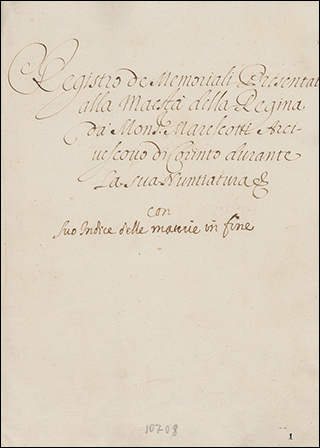 Registro de Memoriali Presentat
alla Maestà della Regina
da Mons.r Marescotti Arci-
uescouo di Corinto durante
La sua Nuntiatura &
con
suo Indice delle materie in fine
10708
1